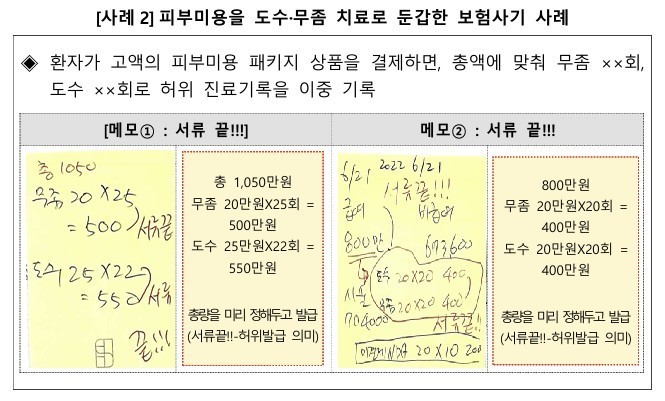 [사례 2] 피부미용을 도수·무좀 치료로 둔갑한 보험사기 사례
◈ 환자가 고액의 피부미용 패키지 상품을 결제하면, 총액에 맞춰 무좀 ××회,
도수 ××회로 허위 진료기록을 이중 기록
[메모① : 서류 끝!!!]
총 1050
무좀 20X25
= 500 서류끝
도수 25X22
= 550 서류
끝!!!
총 1,050만원
무좀 20만원X25회 =
500만원
도수 25만원X22회 =
550만원
총량을 미리 정해두고 발급
(서류끝!!-허위발급 의미)
메모② : 서류 끝!!!
6/21 2022 6/21
서류끝!!!
급여 비급여
800만 673600
도수 20X20 400
무좀 20X20 400
704000 서류끝!!
20X10 200
800만원
무좀 20만원X20회 =
400만원
도수 20만원X20회 =
400만원
총량을 미리 정해두고 발급
(서류끝!!-허위발급 의미)